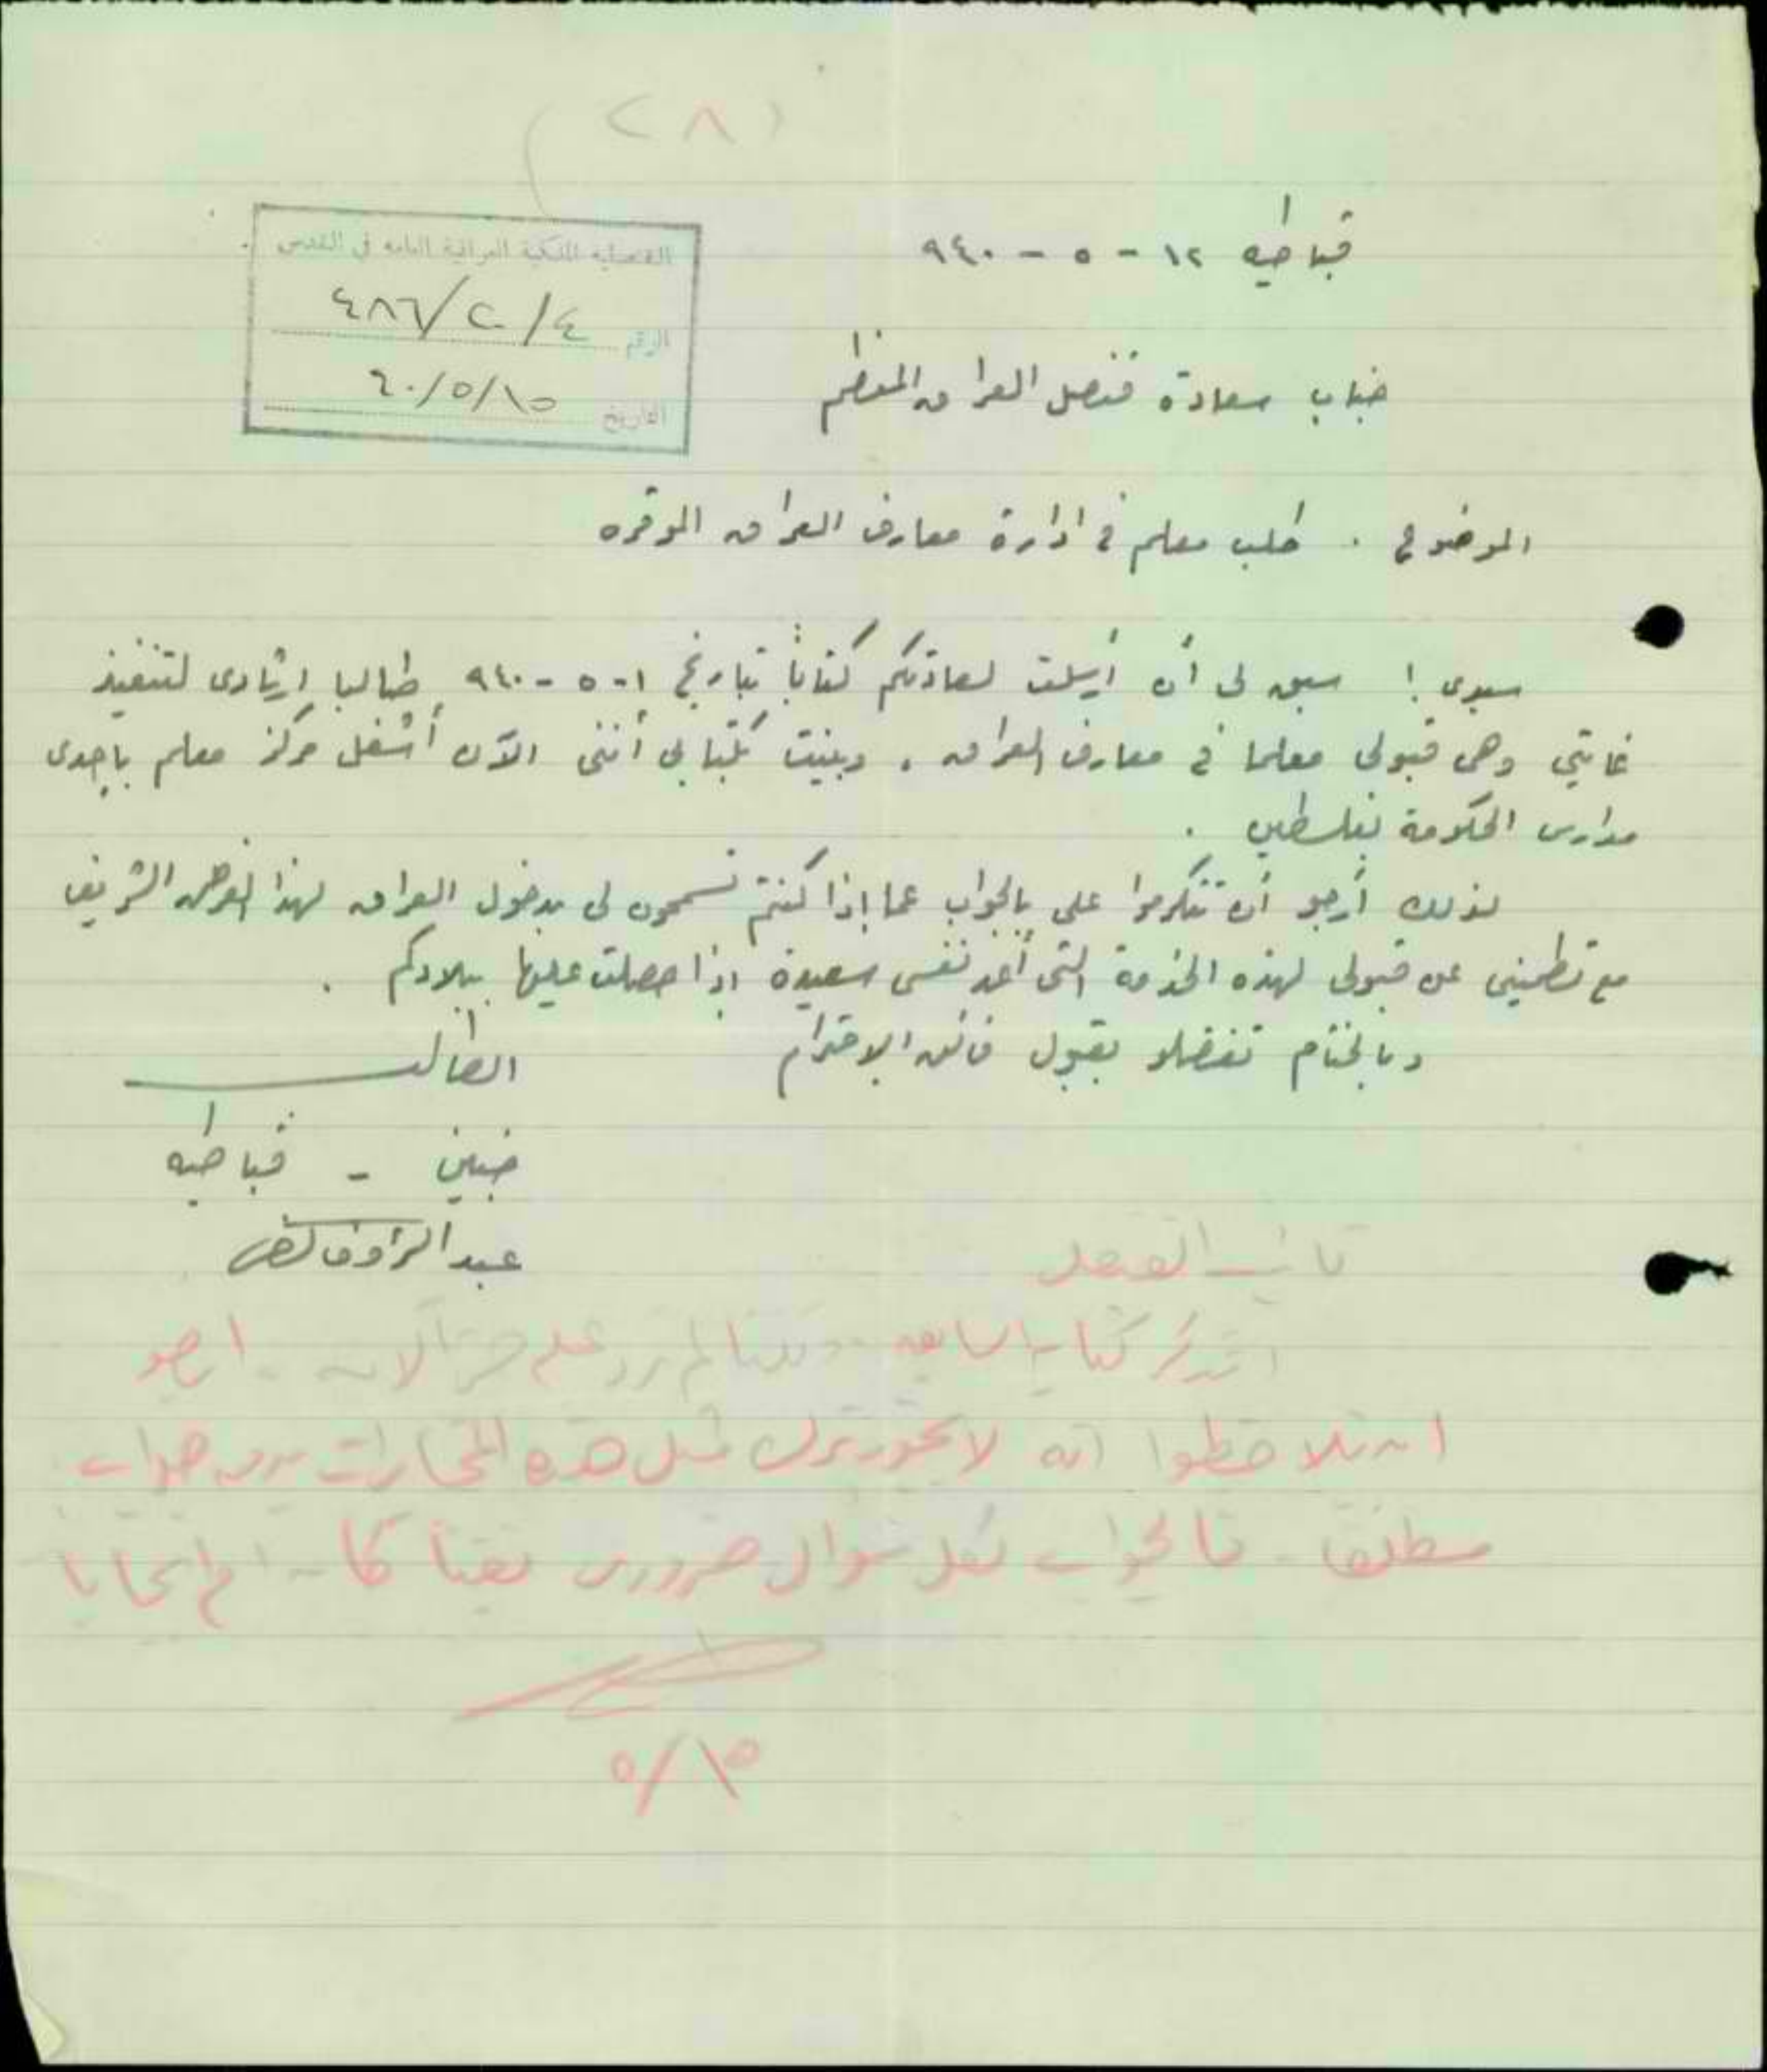 (٢٨)
القنصلية الملكية العراقية العامة في القدس
الرقم ٤٨٦/٢/٤
التاريخ ٤٠/٥/١٥
قباطيه ١٢ - ٥ - ٩٤٠
جناب سعادة قنصل العراق المعظم
الموضوع . طلب معلم في ادارة معارف العراق الموقره
سيدي ! سبق لي أن أرسلت لسعادتكم كتاباً بتاريخ ١ - ٥ - ٩٤٠ طالبا إرشادي لتنفيذ
غايتي وهي قبولي معلما في معارف العراق . وبينت بكتابي أنني الآن أشغل مركز معلم بإحدى
مدارس الحكومة بفلسطين .
لذلك أرجو أن تتكرموا علي بالجواب عما إذا كنتم تسمحون لي بدخول العراق لهذا الغرض الشريف
مع تطميني عن قبولي لهذه الخدمة التي أعد نفسي سعيدة إذا حصلت عليها ببلادكم .
وبالختام تفضلو بقبول فائق الاحترام
الطالب
جنين - قباطيه
عبد الرؤوف
نائب القنصل
اتذكر كتابه السابق ولكننا لم نرد عليه حتى الآن . ارجو
ان تلاحظوا انه لا يجوز ترك مثل هذه المخابرات بدون جواب
مطلقا . فالجواب لكل سؤال ضروري نفيا كان ام ايجابا
٥/١٥